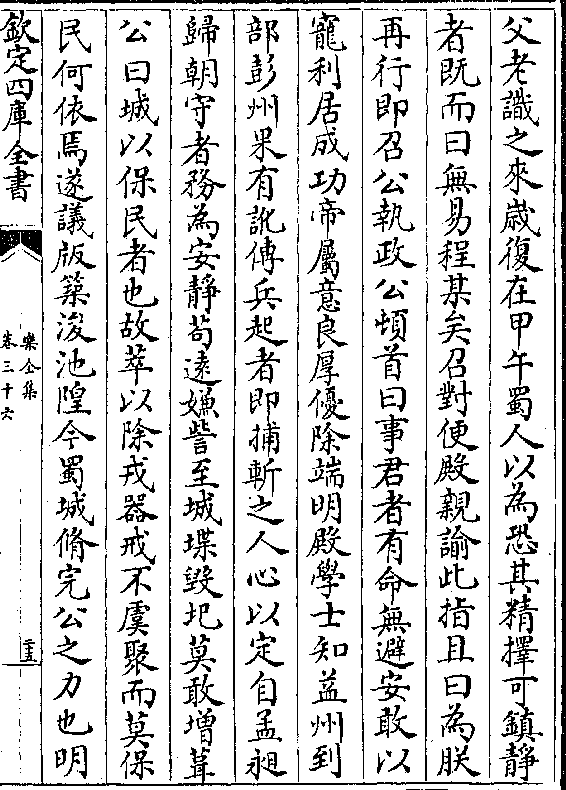 父老識之來歲復在甲午蜀人以為恐其精擇可鎮靜
者既而曰無易程某矣召對便殿親諭此指且曰為朕
再行即召公執政公頓首曰事君者有命無避安敢以
寵利居成功帝屬意良厚優除端明殿學士知益州到
部彭州果有訛傳兵起者即捕斬之人心以定自孟昶
歸朝守者務為安靜茍遠嫌訾至城堞毀圯莫敢增葺
公曰城以保民者也故萃以除戎器戒不虞聚而莫保
民何依焉遂議版築浚池隍今蜀城脩完公之力也明
欽定四庫全書
樂全集
卷三十六
二五